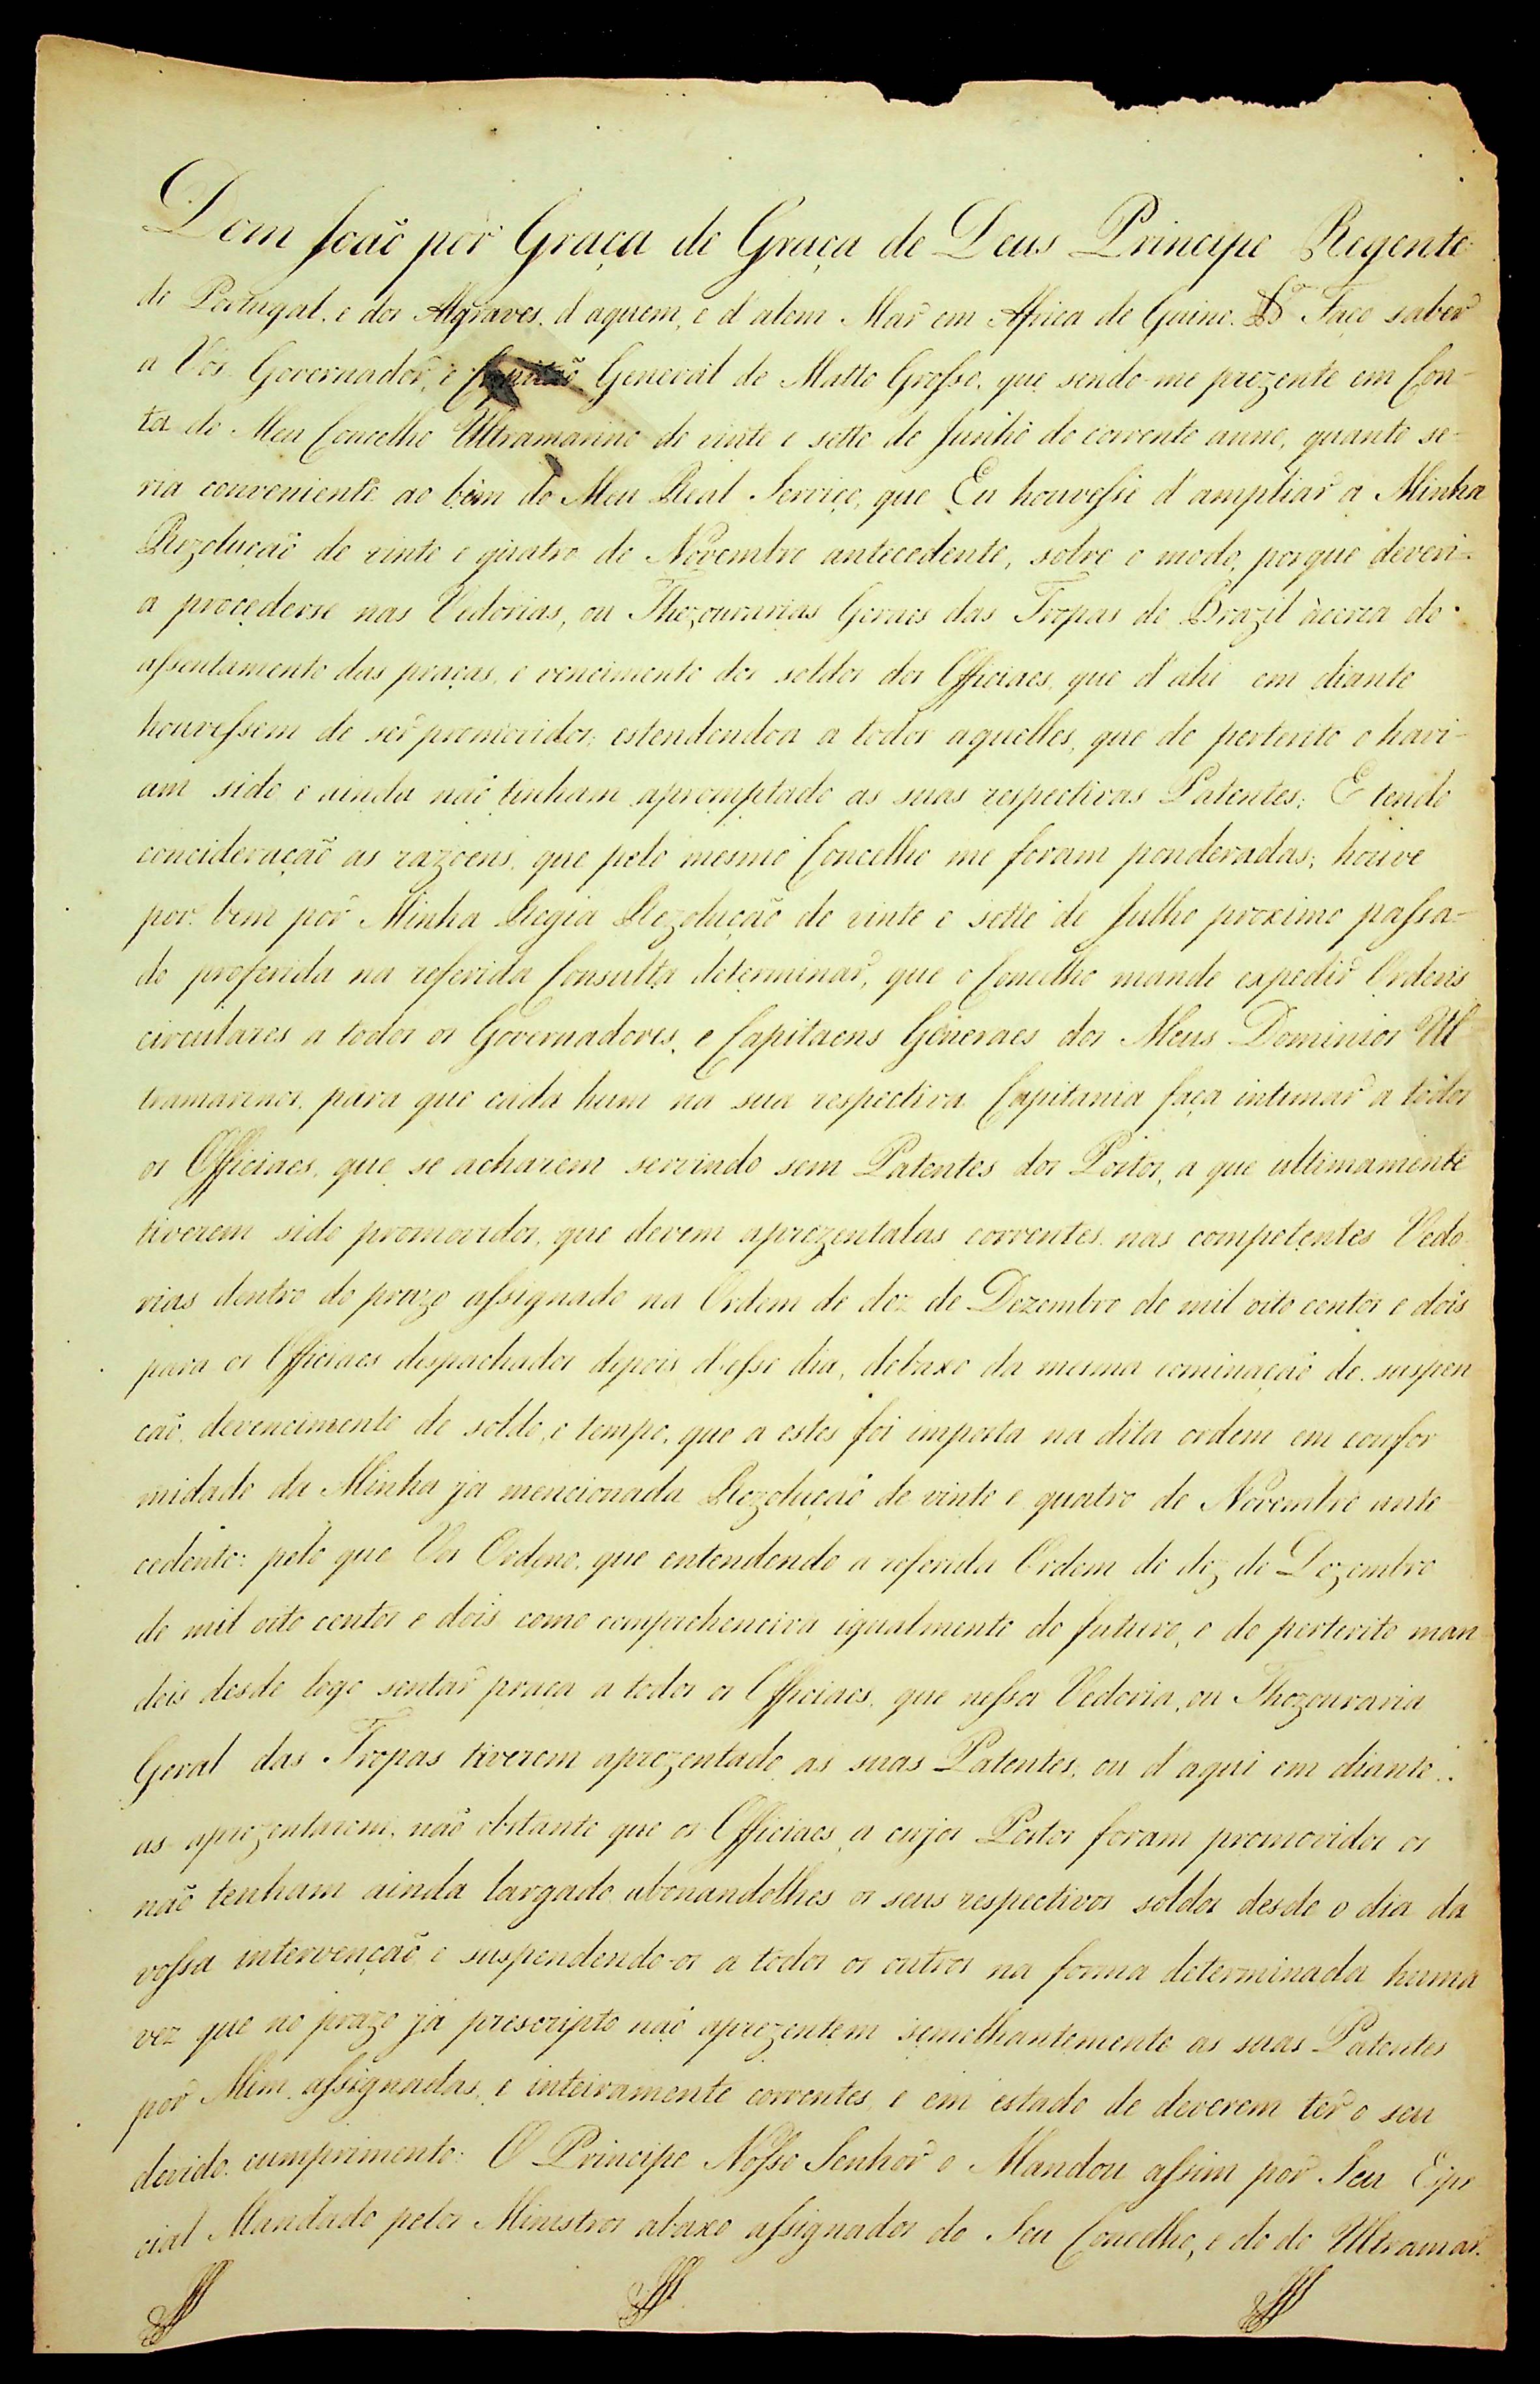 Dom João por Graça de Graça de Deus Principe Regente
de Portugal, e dos Algraves, d'aquem, e d'alem Mar em Africa de Guine. Faço saber
a Vós Governador, e Capitão General de Matto Grosso, que sendo-me prezente em Con-
ta do Meu Concelho Ultramarino de vinte e sette de Junho do corrente anno, quanto se-
ria conveniente ao bem do Meu Real Serviço, que Eu houvesse d'ampliar a Minha
Rezolução de vinte e quatro de Novembro antecedente, sobre o modo, porque deveri-
a procederse nas Vedorias, ou Thezourarias Geraes das Tropas do Brazil àcerca do
assentamento das praças, e vencimento dos soldos dos Officiaes, que d'ahi em diante
houvessem de ser promovidos; estendendoa a todos aquelles, que de perterito o havi-
am sido e ainda não tinham apromptado as suas respectivas Patentes; E tendo
concideração as razoens, que pelo mesmo Concelho me foram ponderadas; houve
por bem por Minha Regia Rezolução de vinte e sette de Julho proximo passa-
do proferida na referida Consulta determinar, que o Concelho mande expedir Ordens
circulares a todos os Governadores, e Capitaens Generaes dos Meus Dominios Ul-
tramarinos, para que cada hum na sua respectiva Capitania faça intimar a todos
os Officiaes, que se acharem servindo sem Patentes dos Postos, a que ultimamente
tiverem sido promovidos, que devem aprezentalas correntes nas competentes Vedo-
rias dentro do prazo assignado na Ordem de dez de Dezembro de mil oito centos e dois
para os Officiaes despachados depois d'esse dia, debaxo da mesma cominação de suspen
cão, devencimento de soldo, e tempo, que a estes foi imposta na dita ordem em confor
midade da Minha ja mencionada Rezolução de vinte e quatro de Novembro ante
cedente: pelo que Vos Ordeno, que entendendo a referida Ordem de dez de Dezembro
de mil oito centos e dois como comprehenciva igualmente do futuro, e do perterito man
deis desde logo sentar praça a todos os Officiaes, que nessa Vedoria, ou Thezouraria
Geral das Tropas tiverem aprezentado as suas Patentes, ou d'aqui em diante
as aprezentarem, não obstante que os Officiaes, a cujos Postos foram promovidos os
não tenham ainda largado, abonandolhes os seus respectivos soldos desde o dia da
vossa intervenção, e suspendendo-os a todos os outros na forma determinada huma
vez que no prazo já prescripto não aprezentem semelhantemente as suas Patentes
por Mim assignadas, e inteiramente correntes, e em estado de deverem ter o seu
devido cumprimento: O Principe Nosso Senhor o Mandou assim por Seu Espe
cial Mandado pelos Ministros abaxo assignados do Seu Concelho, e do de Ultramar.